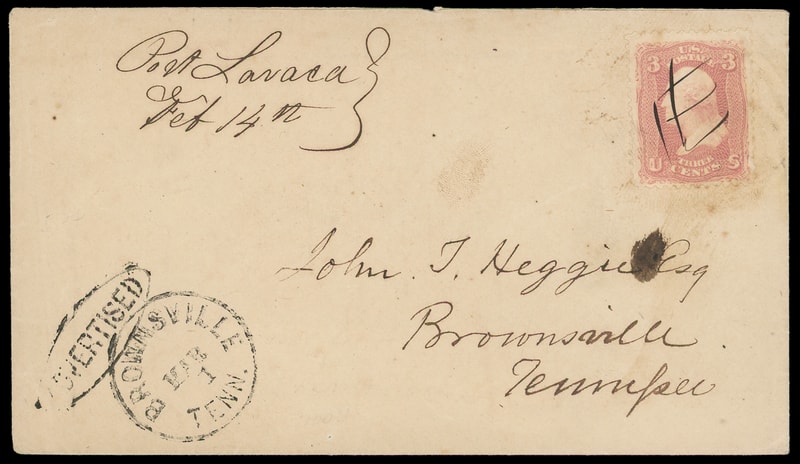 Port Lavaca
Feb 14th
3 U.S. 3
POSTAGE
U THREE S
CENTS
John. T. Heggie Esq
Brownsville
Tennessee
ADVERTISED
BROWNSVILLE
MAR
1
TENN.